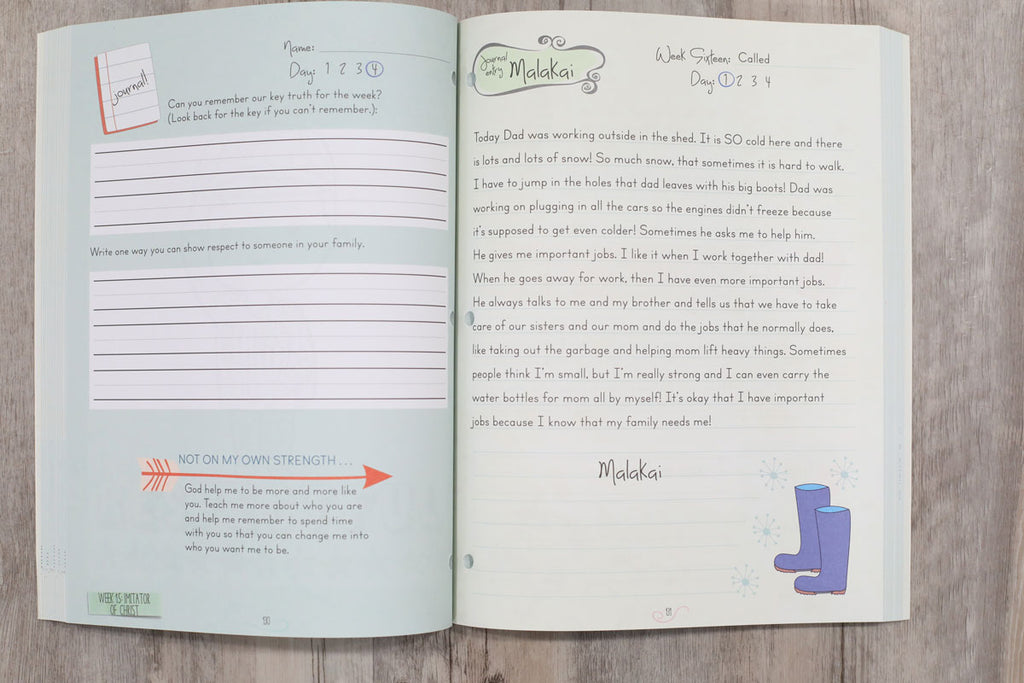 Name:
Day: 1 2 3 4
journal!
Can you remember our key truth for the week?
(Look back for the key if you can't remember.):
Write one way you can show respect to someone in your family.
NOT ON MY OWN STRENGTH...
God help me to be more and more like
you. Teach me more about who you are
and help me remember to spend time
with you so that you can change me into
who you want me to be.
WEEK 15: IMITATOR
OF CHRIST
journal
entry
Malakai
Week Sixteen: Called
Day: 1 2 3 4
Today Dad was working outside in the shed. It is SO cold here and there
is lots and lots of snow! So much snow, that sometimes it is hard to walk.
I have to jump in the holes that dad leaves with his big boots! Dad was
working on plugging in all the cars so the engines didn't freeze because
it's supposed to get even colder! Sometimes he asks me to help him.
He gives me important jobs. I like it when I work together with dad!
When he goes away for work, then I have even more important jobs.
He always talks to me and my brother and tells us that we have to take
care of our sisters and our mom and do the jobs that he normally does,
like taking out the garbage and helping mom lift heavy things. Sometimes
people think I'm small, but I'm really strong and I can even carry the
water bottles for mom all by myself! It's okay that I have important
jobs because I know that my family needs me!
Malakai